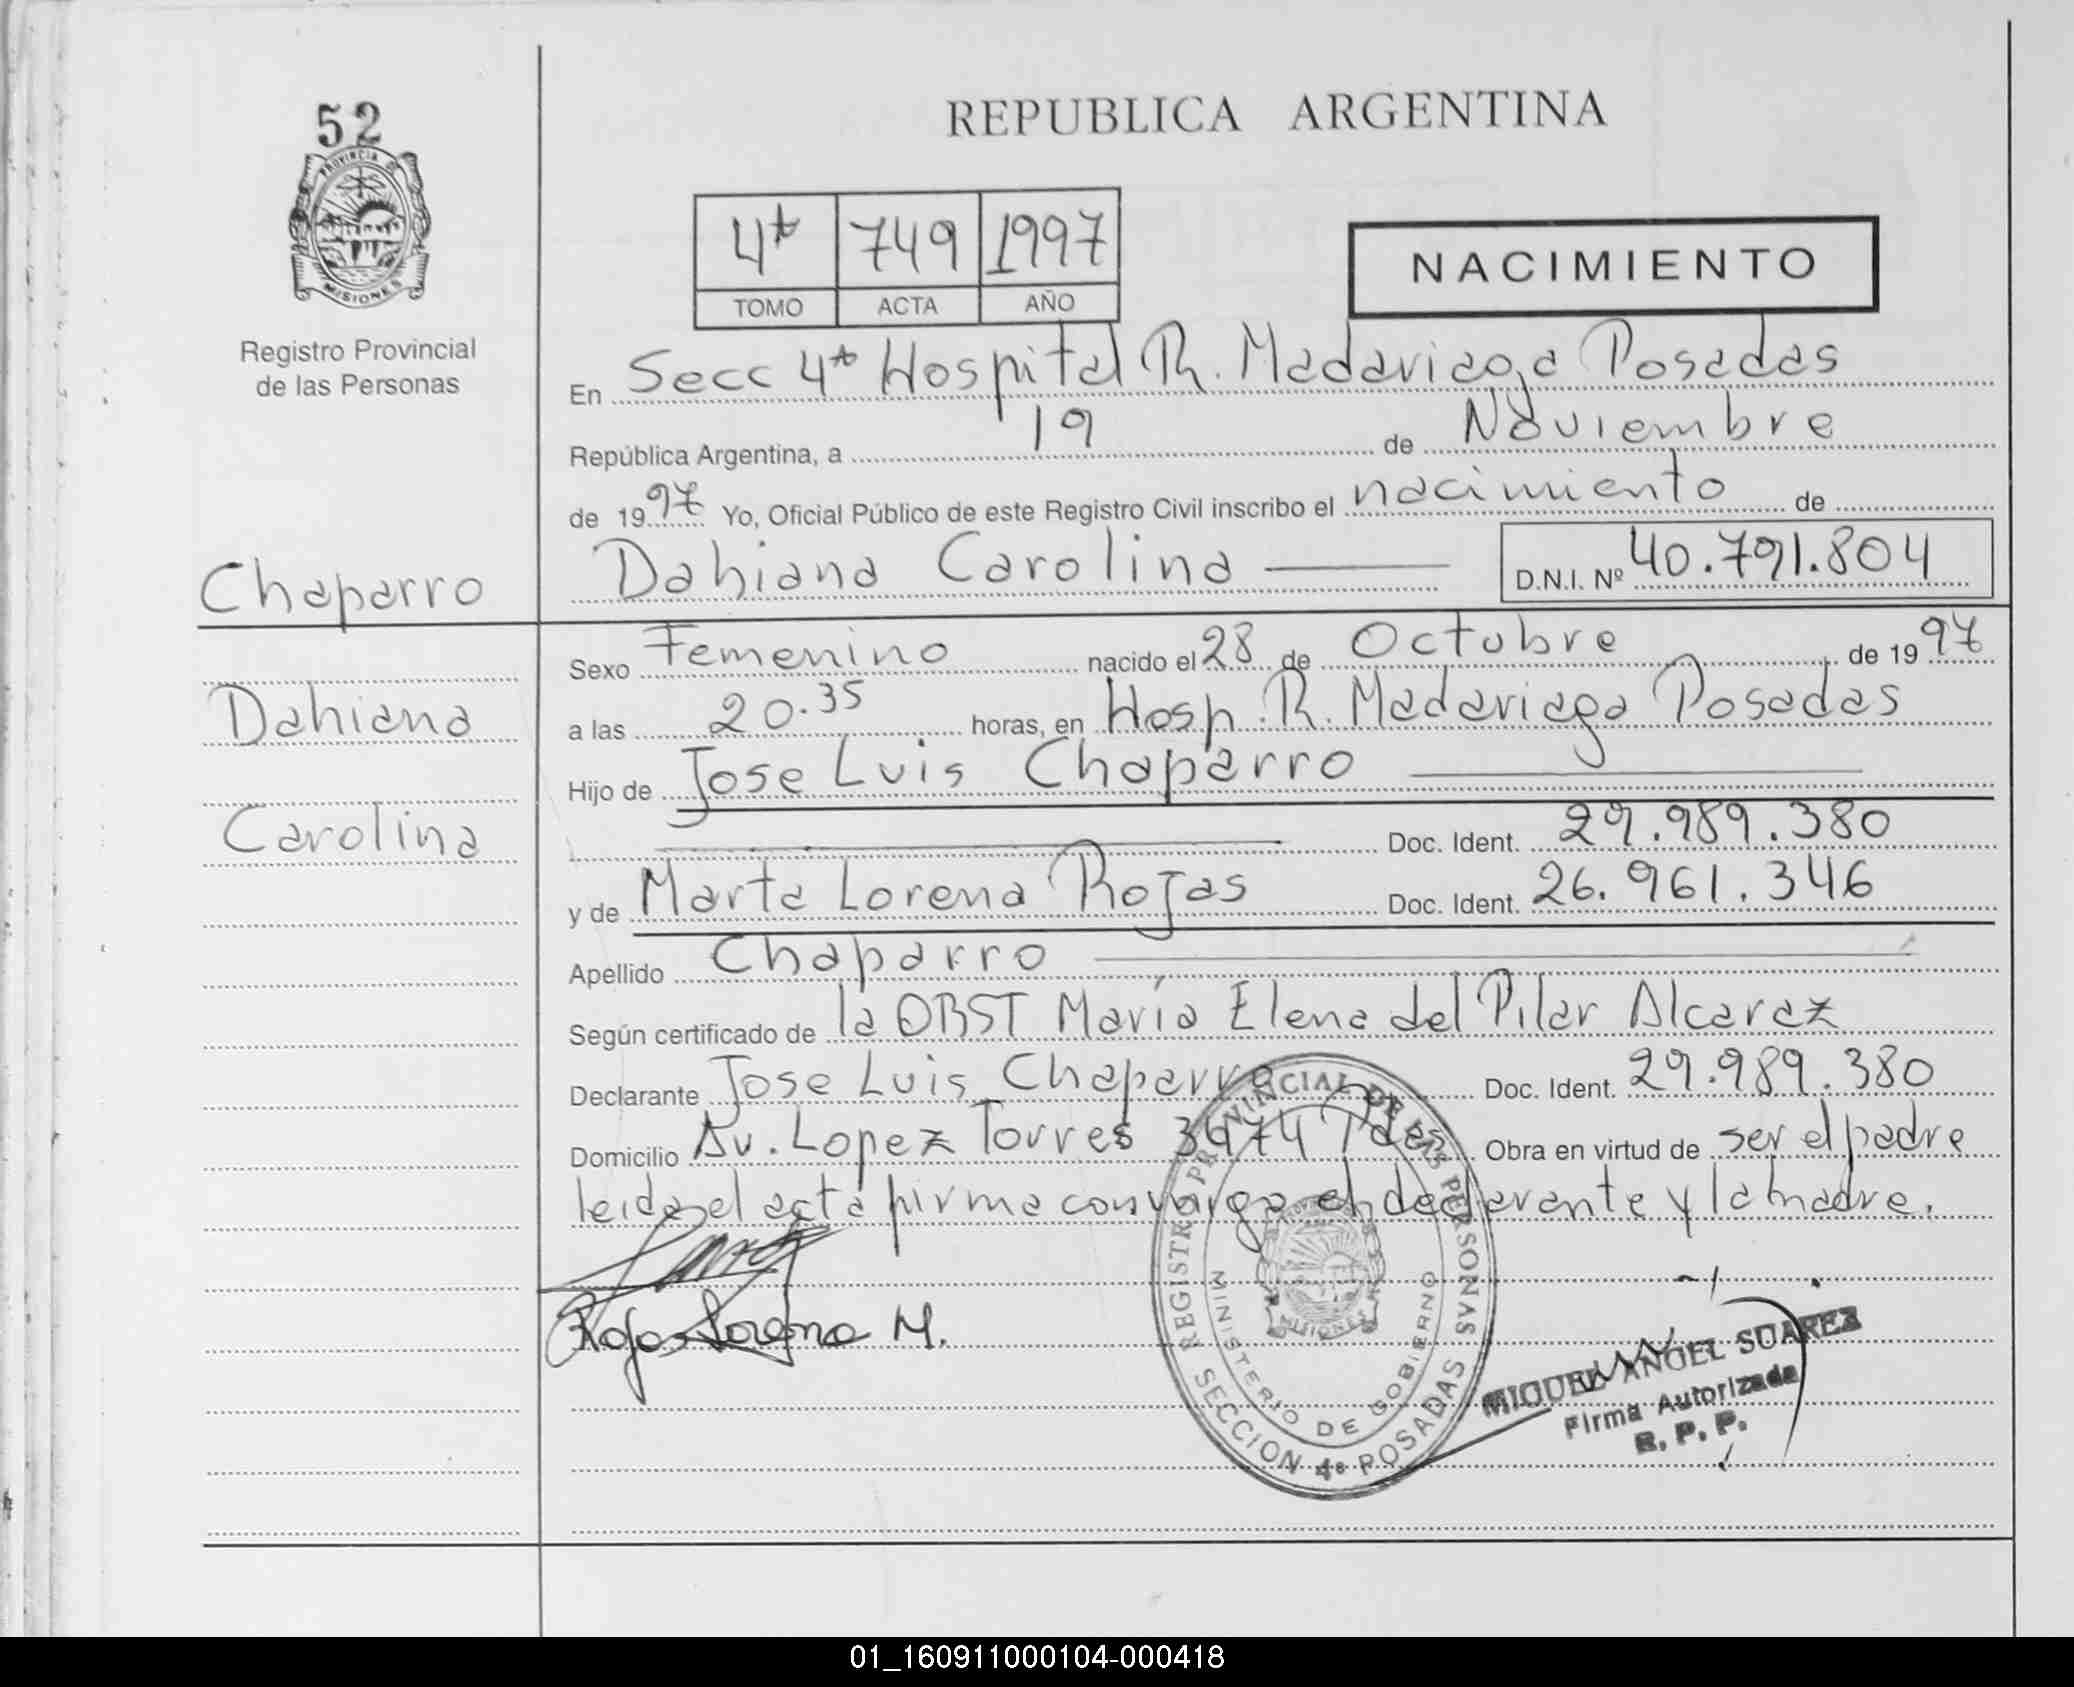 52
PROVINCIA DE
MISIONES
Registro Provincial
de las Personas
Chaparro
Dahiana
Carolina
REPUBLICA ARGENTINA
4ta 749 1997
TOMO ACTA AÑO
NACIMIENTO
En Secc 4ta Hospital R. Madariaga Posadas
República Argentina, a 19 de Noviembre
de 1997 Yo, Oficial Público de este Registro Civil inscribo el nacimiento de
Dahiana Carolina D.N.I. Nº 40.791.804
Sexo Femenino nacido el 28 de Octubre de 1997
a las 20.35 horas, en Hosp. R. Madariaga Posadas
Hijo de Jose Luis Chaparro
Doc. Ident. 29.989.380
y de Marta Lorena Rojas Doc. Ident. 26.961.346
Apellido Chaparro
Según certificado de la OBST María Elena del Pilar Alcaraz
Declarante Jose Luis Chaparro Doc. Ident. 29.989.380
Domicilio Av. Lopez Torres Obra en virtud de ser el padre
leida el acta firma conmigo el declarante y la madre.
Rojas Lorena M.
REGISTRO PROVINCIAL DE LAS PERSONAS
MINISTERIO DE GOBIERNO
MISIONES
SECCION 4ª POSADAS
MIGUEL ANGEL SUAREZ
Firma Autorizada
R. P. P.
01_160911000104-000418